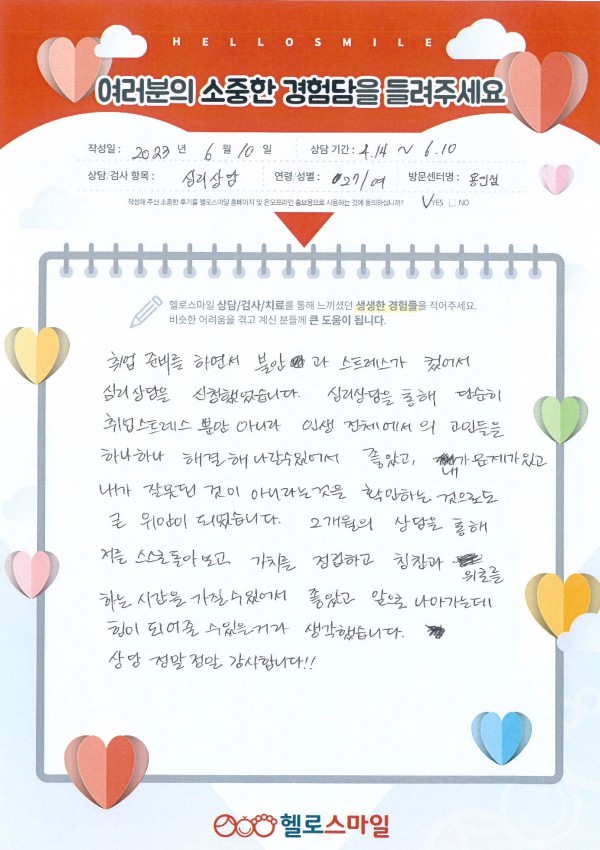 HELLOSMILE
여러분의 소중한 경험담을 들려주세요
작성일 : 2023 년 6 월 10 일 상담 기간 : 4.14 ~ 6.10
상담/검사 항목 : 심리상담 연령/성별 : 027/여 방문센터명 : 용인점
작성해 주신 소중한 후기를 헬로스마일 홈페이지 및 온오프라인 홍보용으로 사용하는 것에 동의하십니까? V YES □ NO
헬로스마일 상담/검사/치료를 통해 느끼셨던 생생한 경험들을 적어주세요.
비슷한 어려움을 겪고 계신 분들께 큰 도움이 됩니다.
취업 준비를 하면서 불안과 스트레스가 컸어서
심리상담을 신청했었습니다. 심리상담을 통해 단순히
취업스트레스 뿐만 아니라 인생 전체에서의 고민들을
하나하나 해결해 나갈수있어서 좋았고, 내가 문제가있고
내가 잘못된 것이 아니라는것을 확인하는 것으로도
큰 위안이 되었습니다. 2개월의 상담을 통해
저를 스스로 돌아보고, 가치를 정립하고 칭찬과 위로를
하는 시간을 가질수있어서 좋았고 앞으로 나아가는데
힘이 되어줄 수있을거라 생각했습니다.
상담 정말정말 감사합니다!!
헬로스마일